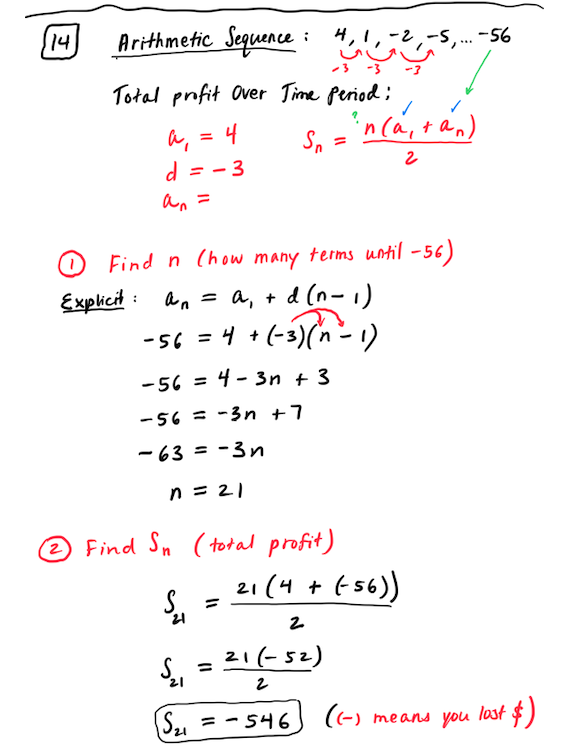 14 Arithmetic Sequence : 4, 1, -2, -5, ... -56
-3 -3 -3
Total profit Over Time Period :
a₁ = 4
d = -3
aₙ =
? Sₙ = n(a₁ + aₙ) / 2
① Find n (how many terms until -56)
Explicit : aₙ = a₁ + d(n-1)
-56 = 4 + (-3)(n - 1)
-56 = 4 - 3n + 3
-56 = -3n + 7
-63 = -3n
n = 21
② Find Sₙ (total profit)
S₂₁ = 21(4 + (-56)) / 2
S₂₁ = 21(-52) / 2
S₂₁ = -546 ((-) means you lost $)